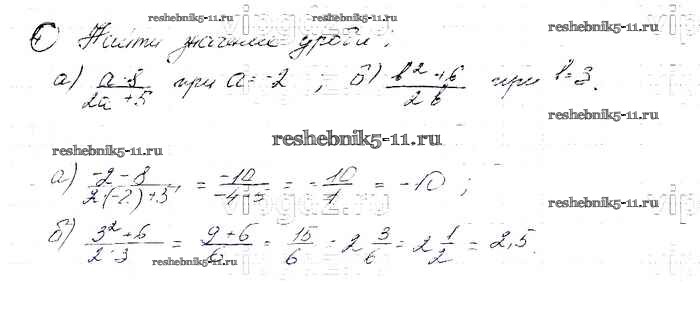 reshebnik5-11.ru
1 Найти значение дроби:
reshebnik5-11.ru
reshebnik5-11.ru
а) (a-8)/(2a+5) при a=-2; б) (b²+6)/(2b) при b=3.
reshebnik5-11.ru
reshebnik5-11.ru
reshebnik5-11.ru
а) (-2-8)/(2(-2)+5) = (-10)/(-4+5) = -10/1 = -10;
reshebnik5-11.ru
б) (3²+6)/(2·3) = (9+6)/6 = 15/6 = 2 3/6 = 2 1/2 = 2,5.
reshebnik5-11.ru